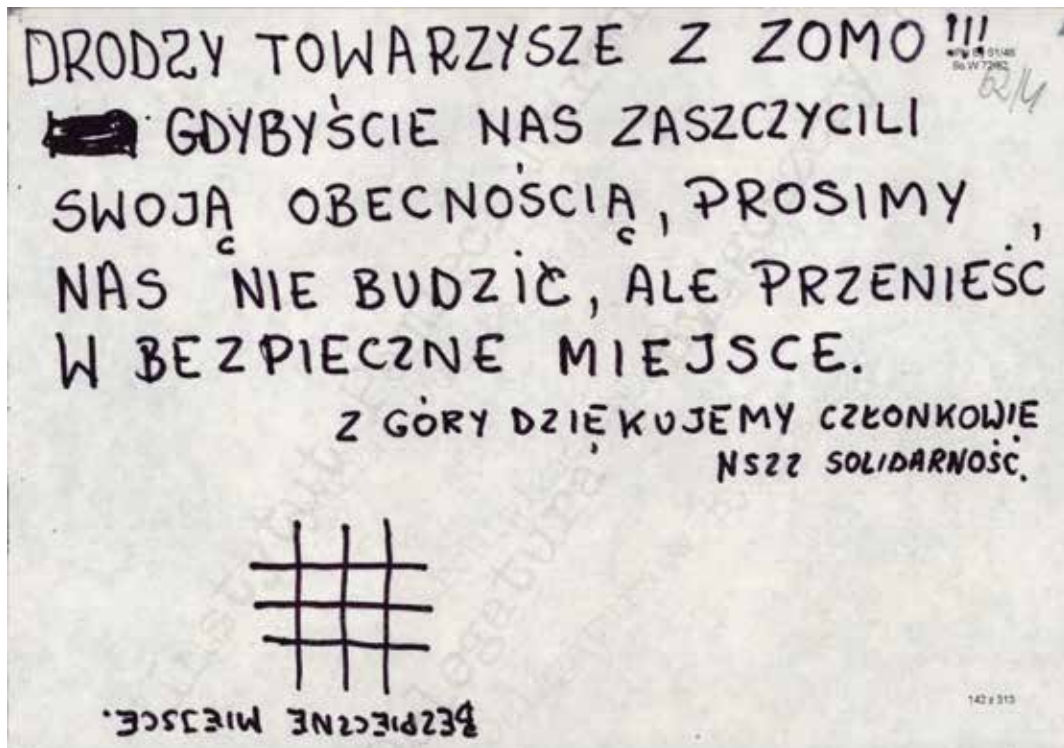 DRODZY TOWARZYSZE Z ZOMO!!!
62/4
GDYBYŚCIE NAS ZASZCZYCILI
SWOJĄ OBECNOŚCIĄ, PROSIMY,
NAS NIE BUDZIĆ, ALE PRZENIEŚĆ
W BEZPIECZNE MIEJSCE.
Z GÓRY DZIĘKUJEMY CZŁONKOWIE
NSZZ SOLIDARNOŚĆ.
BEZPIECZNE MIEJSCE.
142 z 313